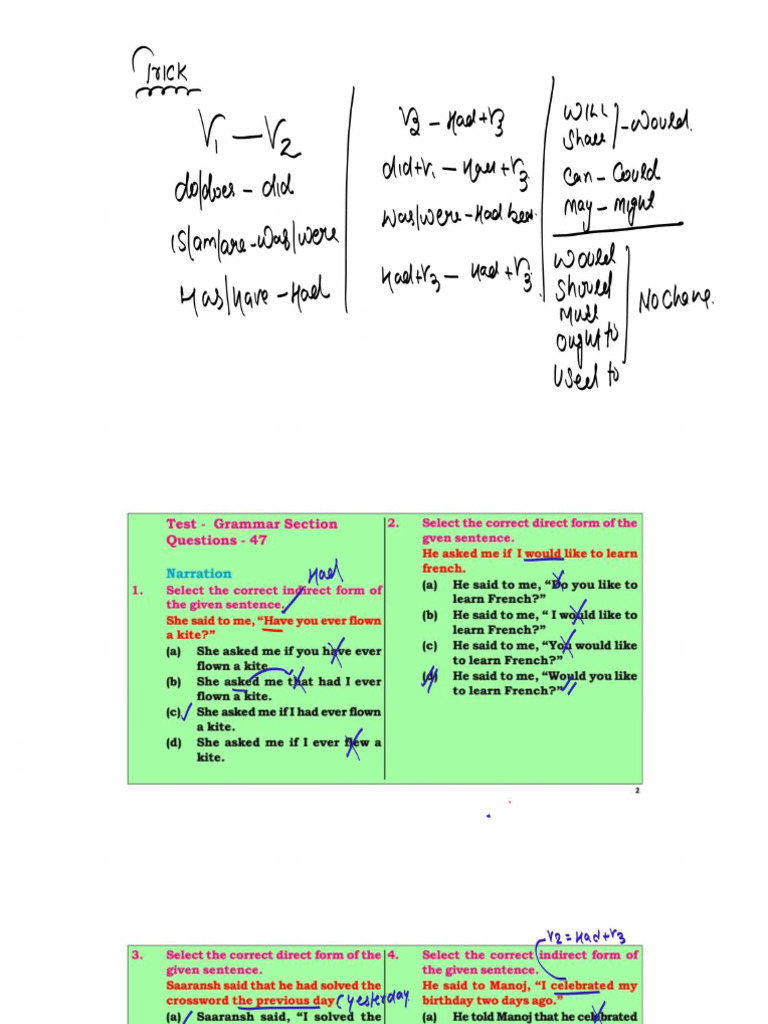 Trick
V1 — V2
do/does - did
is/am/are - was/were
Has/have - Had
V2 - Had+V3
did+V1 - Had+V3
was/were - Had been
Had+V3 - Had+V3
WILL
Shall
- Would
Can - Could
May - Might
Would
Should
Must
Ought to
Used to
No Change.
Test - Grammar Section
Questions - 47
Narration
Had
1. Select the correct indirect form of
the given sentence.
She said to me, “Have you ever flown
a kite?”
(a) She asked me if you have ever
flown a kite.
(b) She asked me that had I ever
flown a kite.
(c) She asked me if I had ever flown
a kite.
(d) She asked me if I ever flew a
kite.
2. Select the correct direct form of the
gven sentence.
He asked me if I would like to learn
french.
(a) He said to me, “Do you like to
learn French?”
(b) He said to me, “ I would like to
learn French?”
(c) He said to me, “You would like
to learn French?”
(d) He said to me, “Would you like
to learn French?”
2
3. Select the correct direct form of the
given sentence.
Saaransh said that he had solved the
crossword the previous day (yesterday
(a) Saaransh said, “I solved the
V2 = Had+V3
4. Select the correct indirect form of
the given sentence.
He said to Manoj, “I celebrated my
birthday two days ago.”
(a) He told Manoj that he celebrated